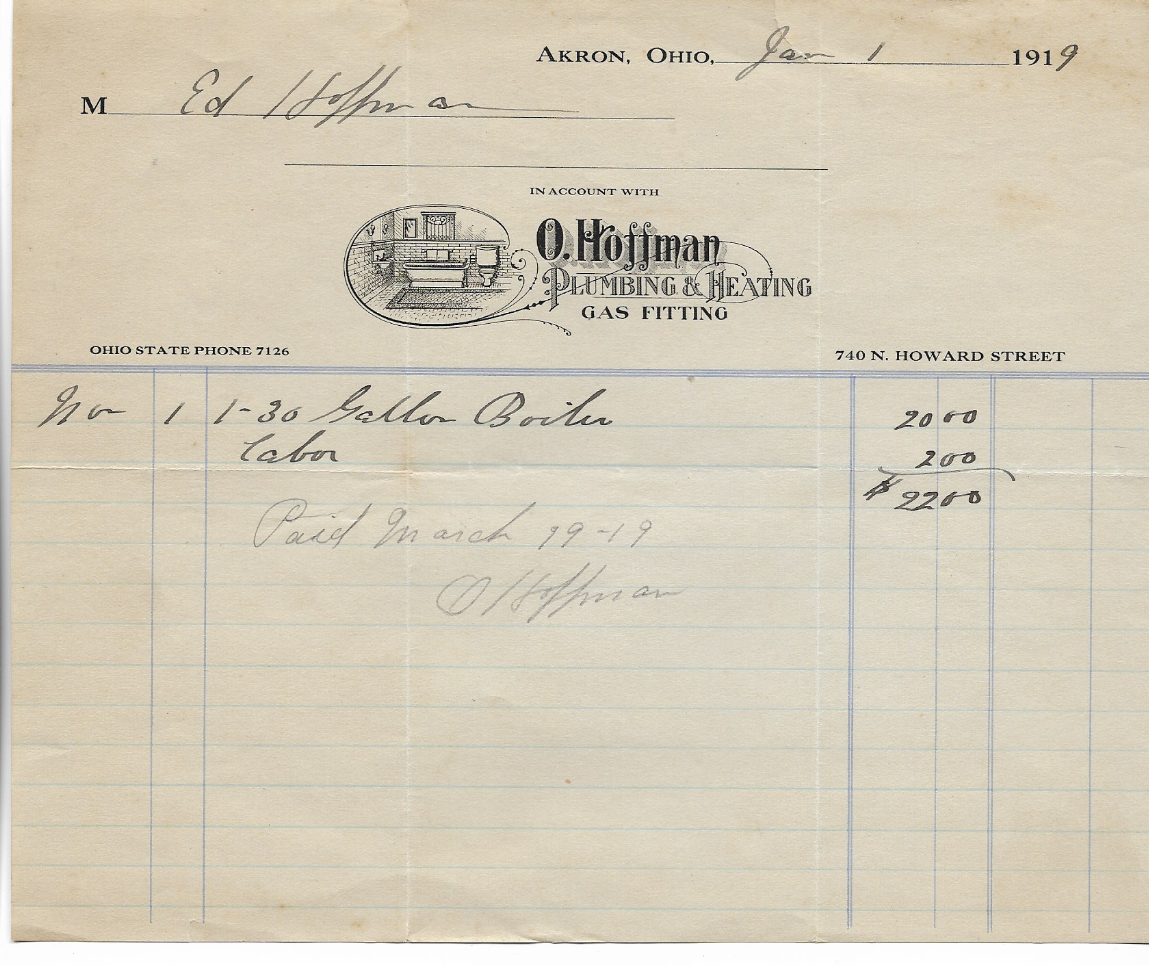 AKRON, OHIO, Jan 1 1919
M Ed Hoffman
IN ACCOUNT WITH
O. Hoffman
PLUMBING & HEATING
GAS FITTING
OHIO STATE PHONE 7126 740 N. HOWARD STREET
Nov 1 1-30 Gallon Boiler 20 00
Labor 2 00
$ 22 00
Paid March 19-19
O Hoffman